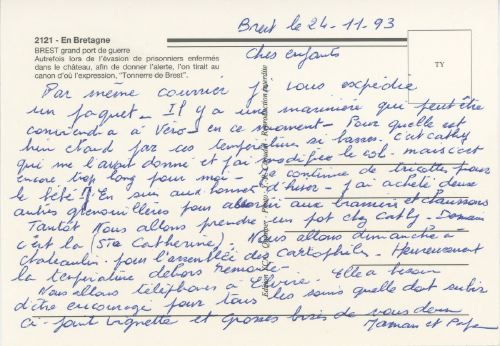 2121 - En Bretagne
BREST grand port de guerre
Autrefois lors de l'évasion de prisonniers enfermés
dans le château, afin de donner l'alerte, l'on tirait au
canon d'où l'expression, "Tonnerre de Brest".
Brest le 24-11-93
TY
Chers enfants
Par même courrier je vous expédie
un paquet - Il y a une marinière qui peut être
conviendra à Véro - en ce moment - Pour quelle est
bien chaud par ces températures si basses. C'est Cathy
qui me l'avait donné et j'ai modifié le col - mais c'est
encore trop long pour moi - Je continue de tricoter pour
le bébé !! En sus aux bonnet d'hiver - j'ai acheté deux
autres grenouillères pour aux brassières et chaussons
Tantôt nous allons prendre un pot chez Cathy - Demain
c'est la (Ste Catherine). Nous allons dimanche à
Chateaulin pour l'assemblée des cartophiles - Heureusement
la température dehors remonte -
Nous allons téléphoner à Elle a besoin
d'être encouragé pour tous les soins quelle doit subir
ci-joint vignette et grosses bises de nous deux
Maman et Papa